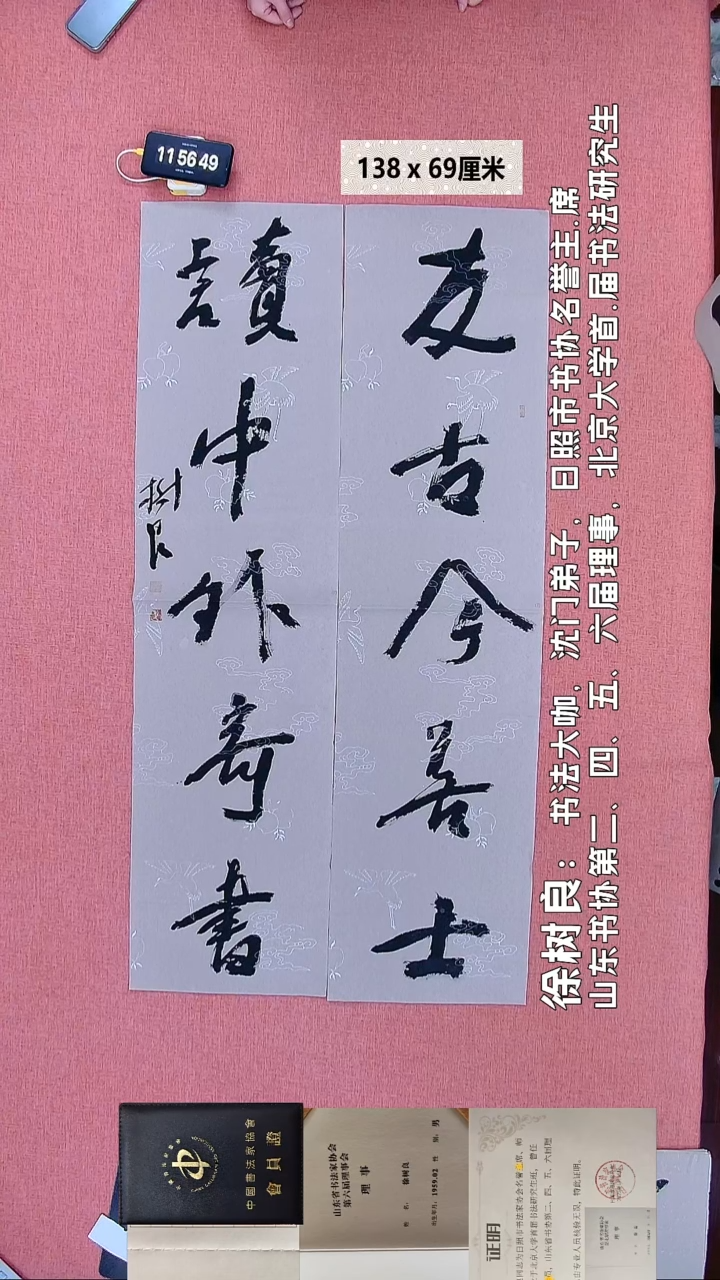 11 56 49
138 x 69厘米
友古今善士
讀中外奇書
树良
徐树良：书法大咖，沈门弟子，日照市书协名誉主.席
山东书协第二、四、五、六届理事，北京大学首.届书法研究生
中國書法家協會
會員證
山东省书法家协会
第六届理事会
理 事
姓 名： 徐树良
性 别： 男
出生年月：1959.02
证明